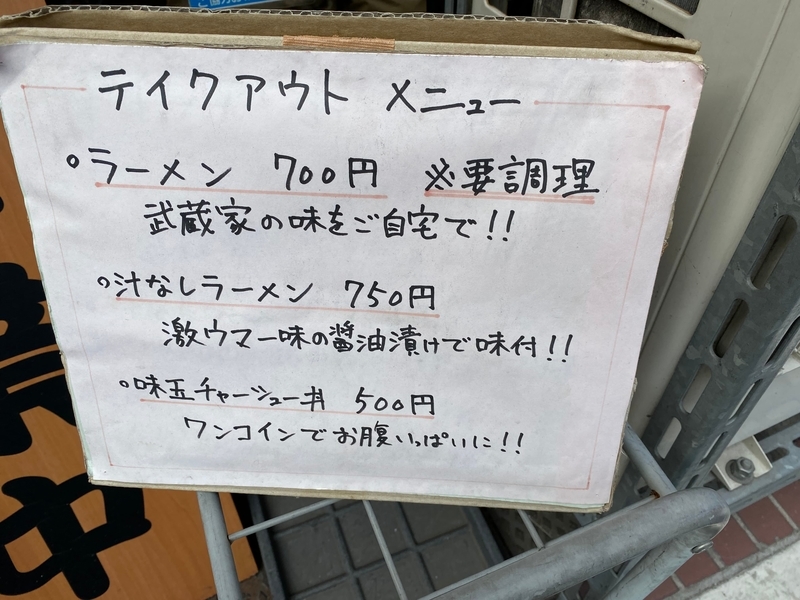 テイクアウト メニュー
○ラーメン 700円 ※要調理
武蔵家の味をご自宅で!!
○汁なしラーメン 750円
激ウマー味の醤油漬けで味付!!
○味玉チャーシュー丼 500円
ワンコインでお腹いっぱいに!!
中